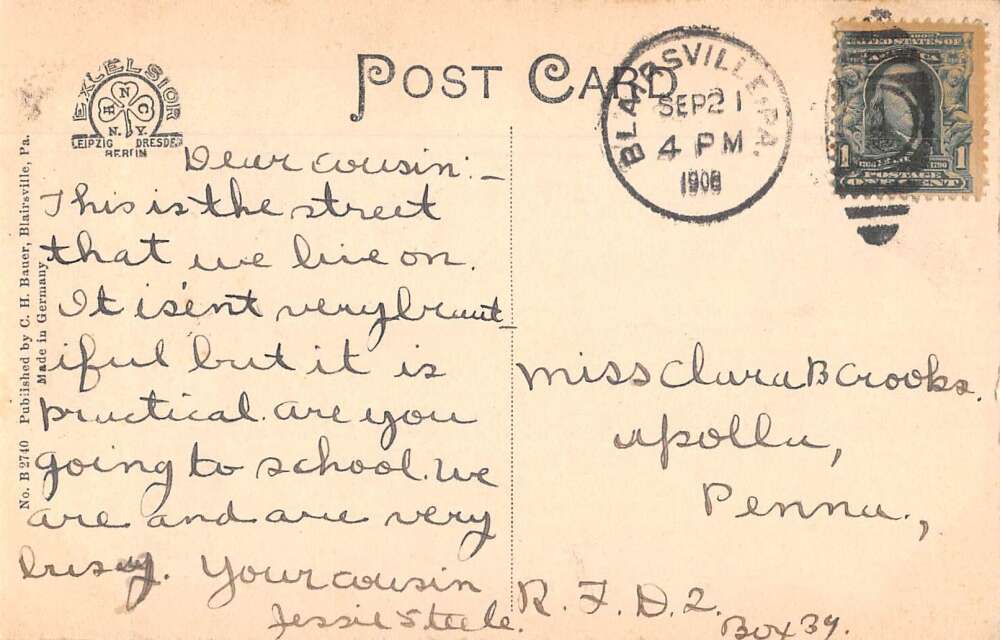 POST CARD
EXCELSIOR
H N C
N. Y.
LEIPZIG DRESDEN
BERLIN
BLAIRSVILLE, PA.
SEP 21
4 PM
1908
UNITED STATES OF
AMERICA
1 1
POSTAGE
ONE CENT
No. B 2740 Published by C. H. Bauer, Blairsville, Pa.
Made in Germany
Dear cousin:–
This is the street
that we live on.
It is'ent very beaut-
iful but it is
practical. are you
going to school. We
are and are very
busy. Your cousin
Jessie Steele.
Miss Clara B Crooks.
Apollo,
Penna.,
R. F. D. 2.
Box 34.